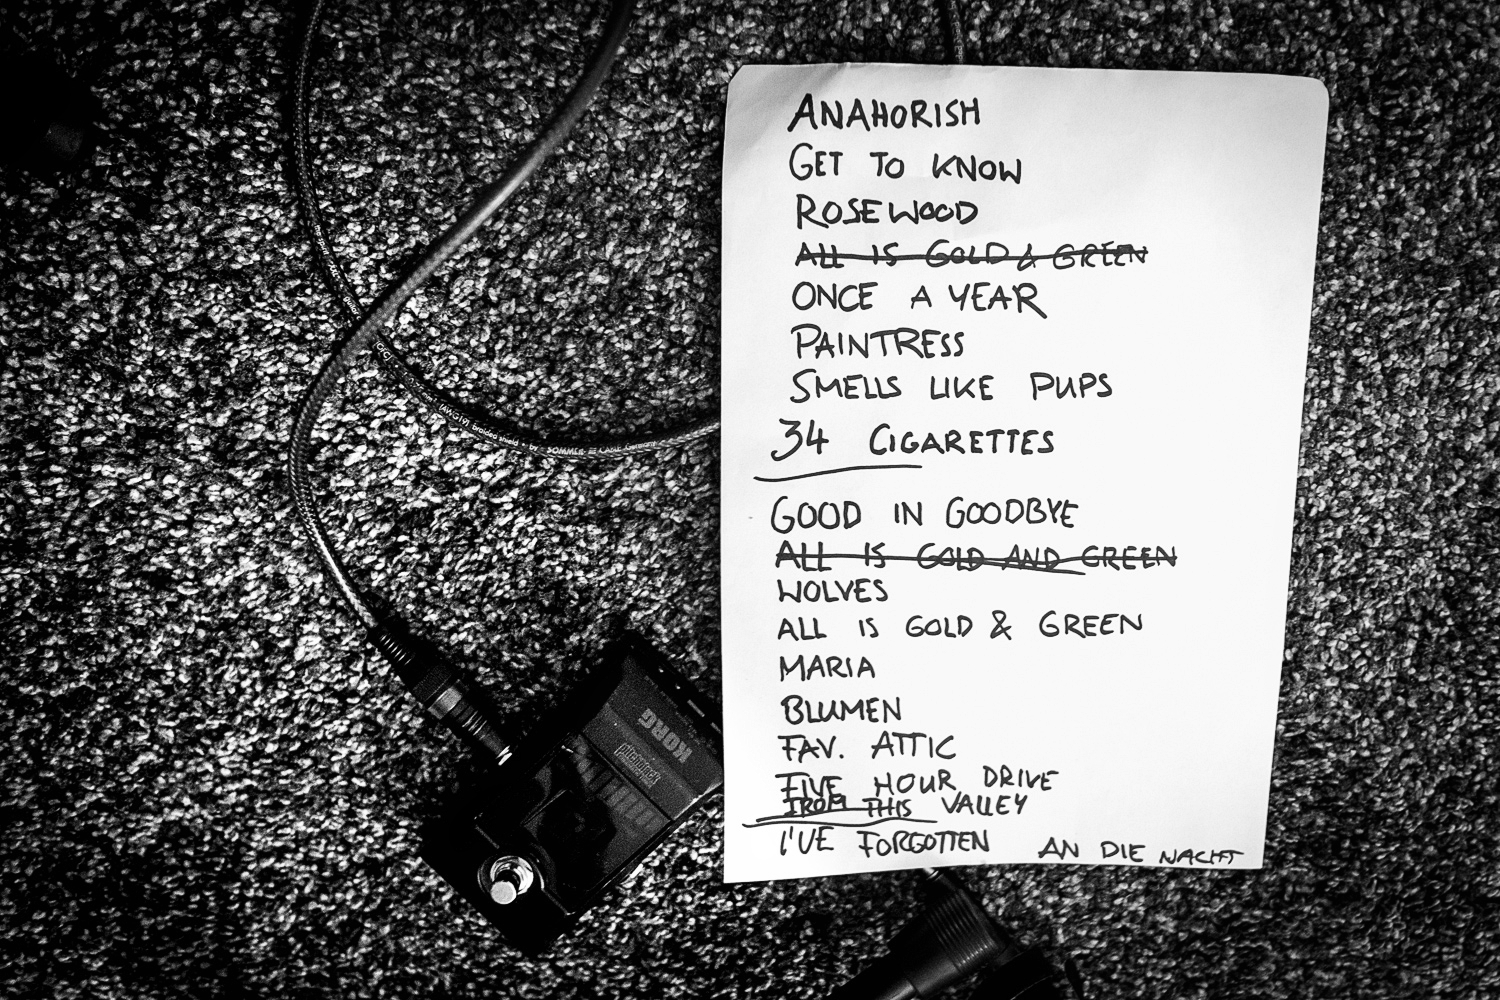 ANAHORISH
GET TO KNOW
ROSEWOOD
ALL IS GOLD & GREEN
ONCE A YEAR
PAINTRESS
SMELLS LIKE PUPS
34 CIGARETTES
GOOD IN GOODBYE
ALL IS GOLD AND GREEN
WOLVES
ALL IS GOLD & GREEN
MARIA
BLUMEN
FAV. ATTIC
FIVE HOUR DRIVE
FROM THIS VALLEY
I'VE FORGOTTEN AN DIE NACHT
(AWG19), braided shield • by SOMMER CABLE Germany
KORG
pitchblack